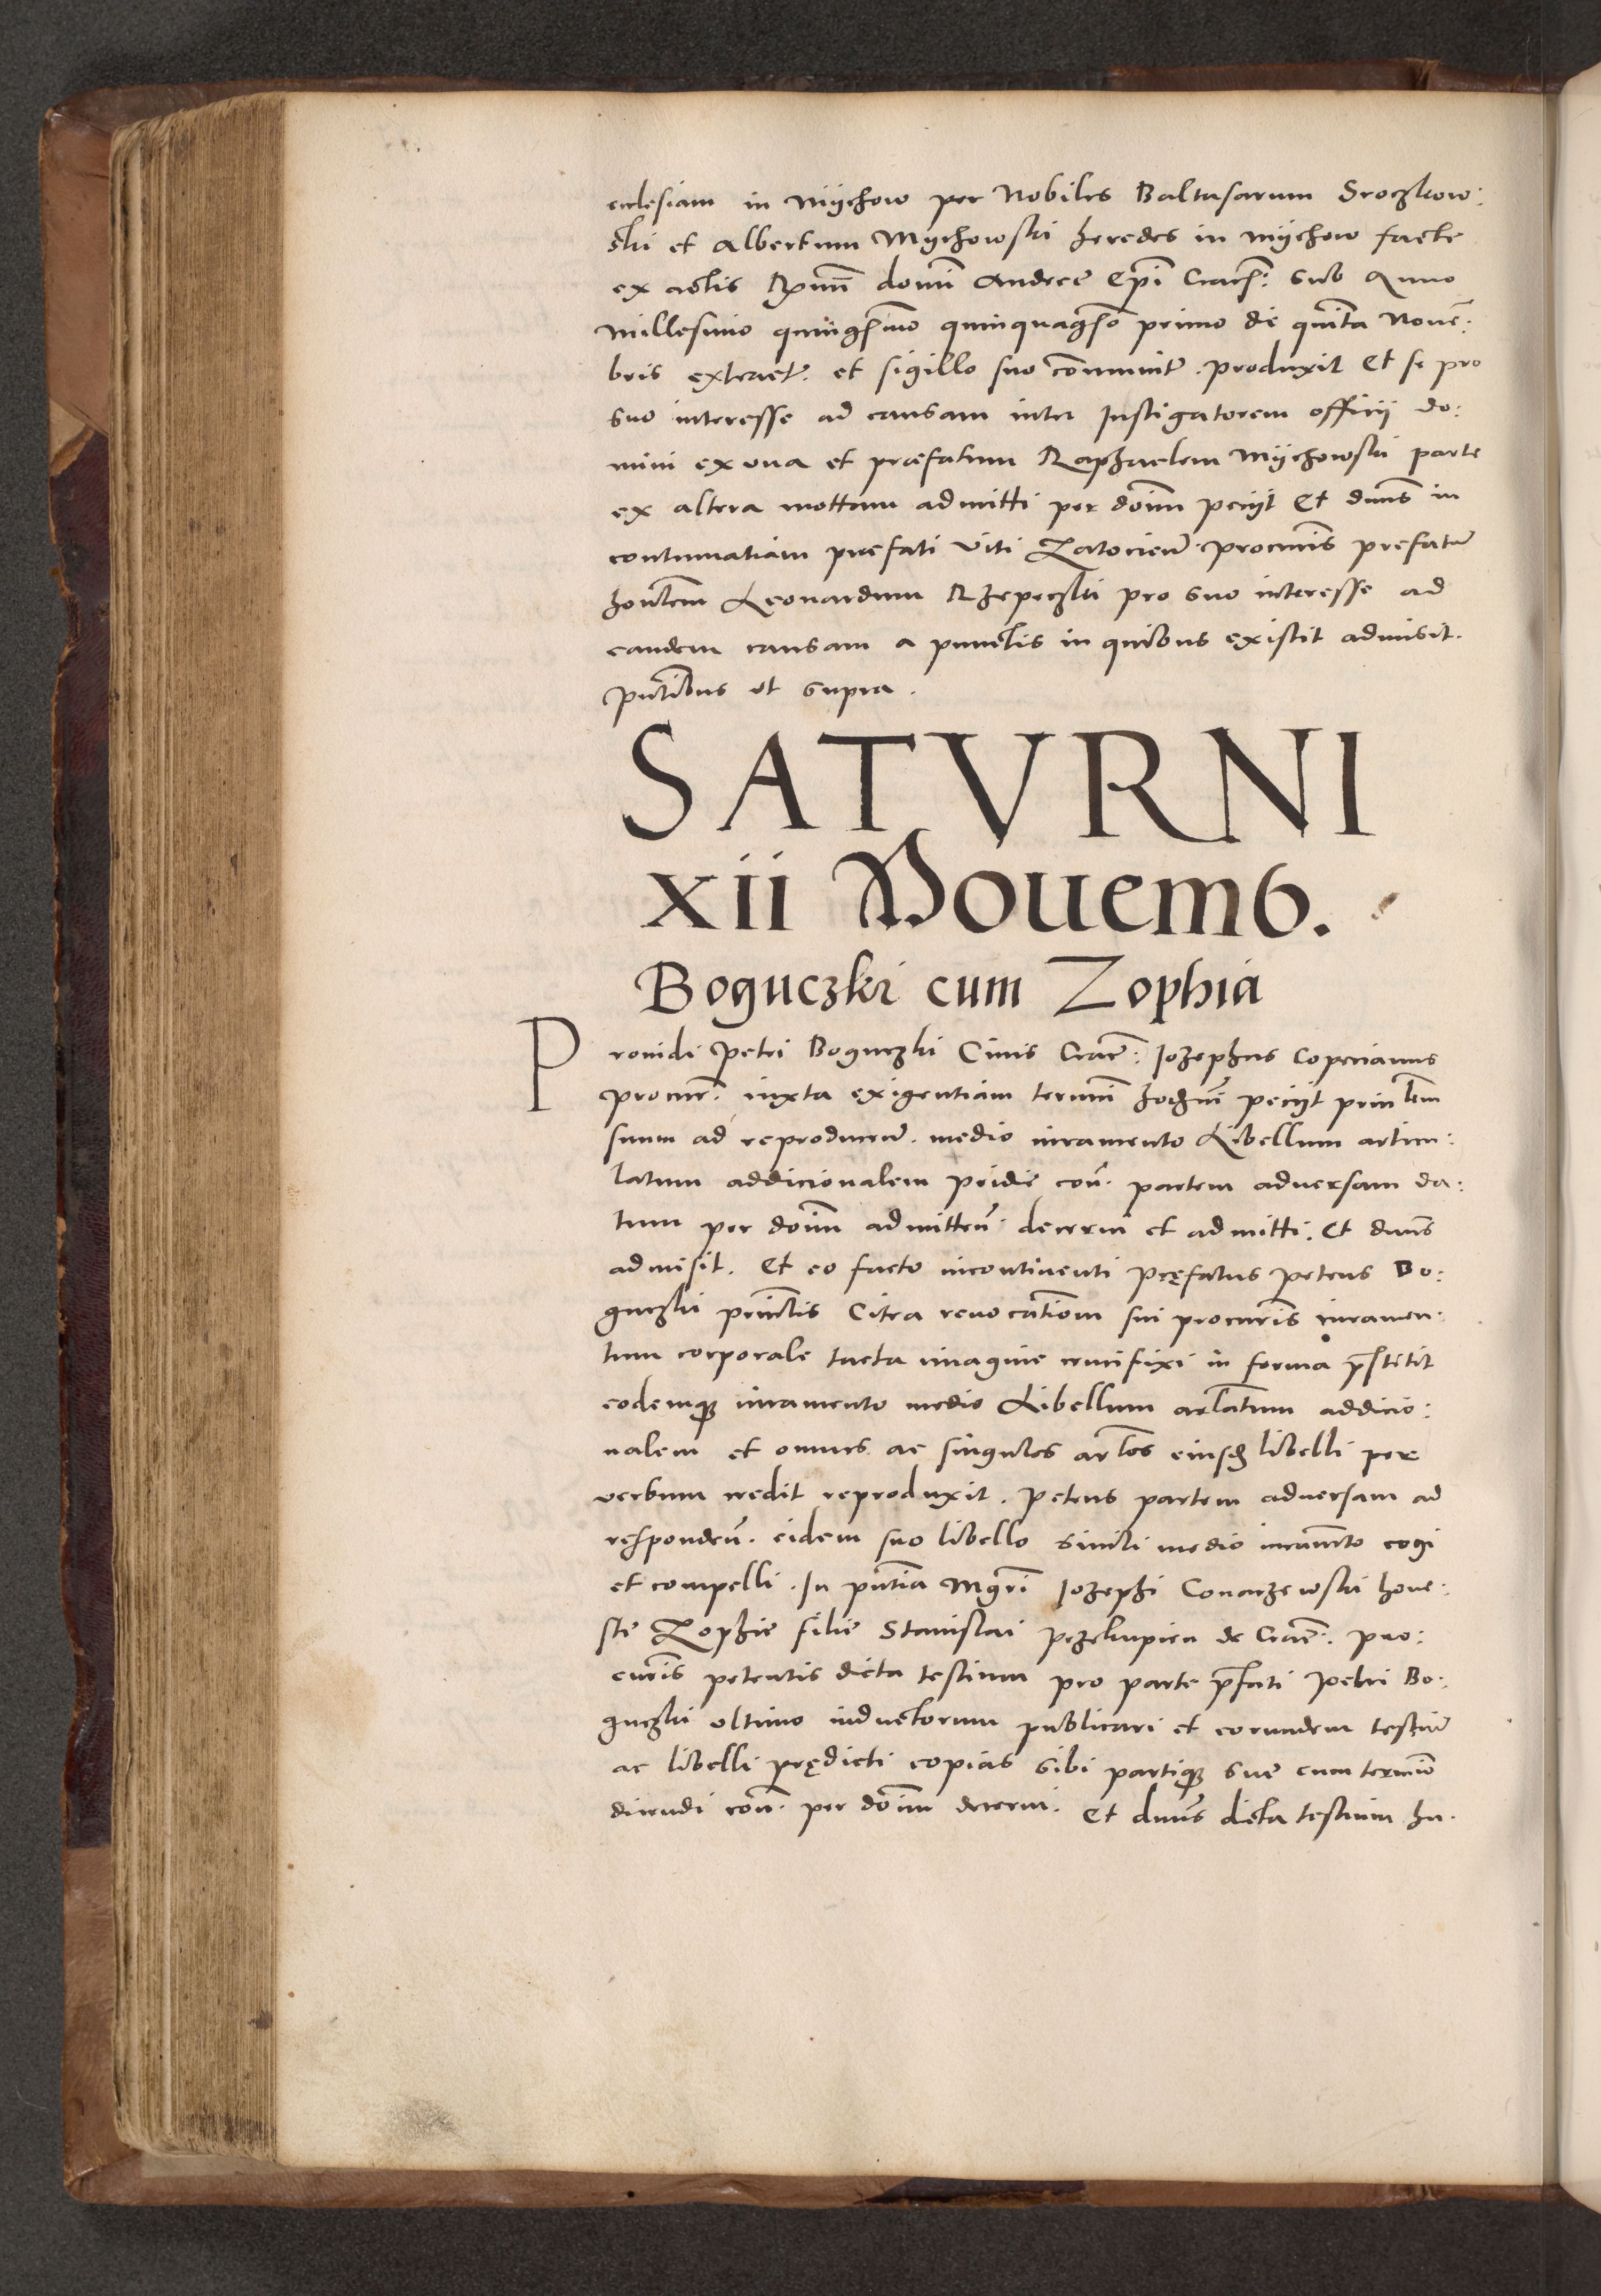 ecclesiam in Mÿchow per Nobiles Baltasarum Sroczkow:
ski et Albertum Mÿchowski heredes in Mÿchow facte
ex actis Rmi domi Andree Epi Crac: sub Anno
Millesimo quingmo quinquagmo primo die quinta Novē:
bris extract. et sigillo suo cōmunit. produxit Et se pro
suo interesse ad causam inter Instigatorem officii do:
mini ex vna et præfatum Raphaelem Mÿchowski parte
ex altera mottam admitti per dōm petÿt Et dnūs in
contumatiam præfati Viti procuris prefatū
Leonardum Rzepeczki pro suo interesse ad
eandem causam a punctis in quibus existit admisit.
pntibus vt supra.
SATVRNI
xii Nouemb.
Boguczki cum Zophia
Prouidi Petri Boguczki Ciuis Crac: Iozephus Copecianus
procur: iuxta exigentiam termī hodnī petÿt prinlem
suum ad reproducen. medio iuramento Libellum articu:
latum addicionalem pridie con. partem aduersam da:
tum per dōm admitten. decerni et admitti. Et dnūs
admisit. Et eo facto incontinenti Pręfatus Petrus Bo:
guczki prinlis Citra reuocationem sui procuris iuramen:
tum corporale tacta imagine crucifixi in forma pstitit
eodemq iuramento medio Libellum artlatum addicio:
nalem et omnes ac singulos artlos eiusd libelli per
verbum credit reproduxit. Petens partem aduersam ad
responden. eidem suo libello simili medio iuramto cogi
et compelli. In pntia Mgri Iozephi Conarzewski hone:
ste Zophie filie Stanislai Przelupien de Crac: pro:
curis petentis dicta testium pro parte pfati Petri Bo:
guczki vltimo inductorum publicari et eorumdem testiū
ac libelli prędicti copias sibi partiq sue cum termīo
dicendi con. per dōm decerni. Et dnūs dicta testium hu.